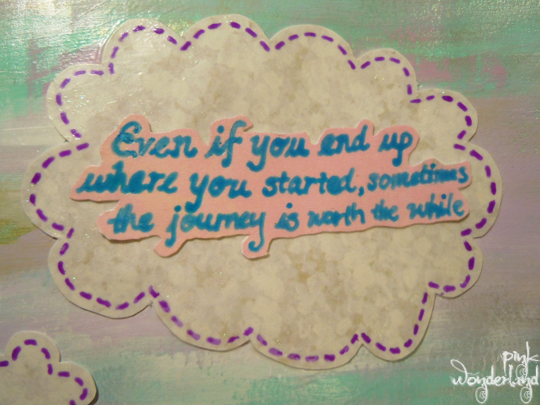 Even if you end up
where you started, sometimes
the journey is worth the while
pink
wonderland